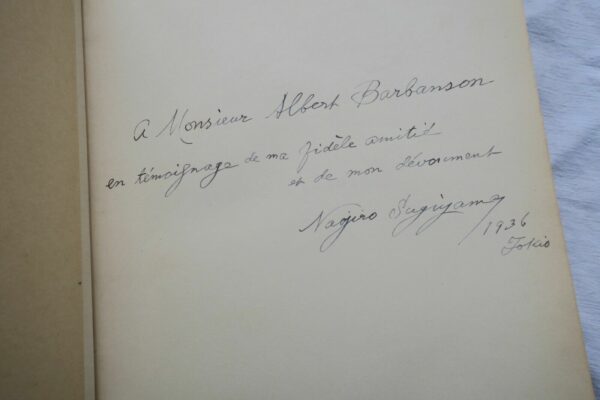 A Monsieur Albert Barbanson
en témoignage de ma fidèle amitié
et de mon dévoument
Naojiro Sugiyama
/1936
Tokio